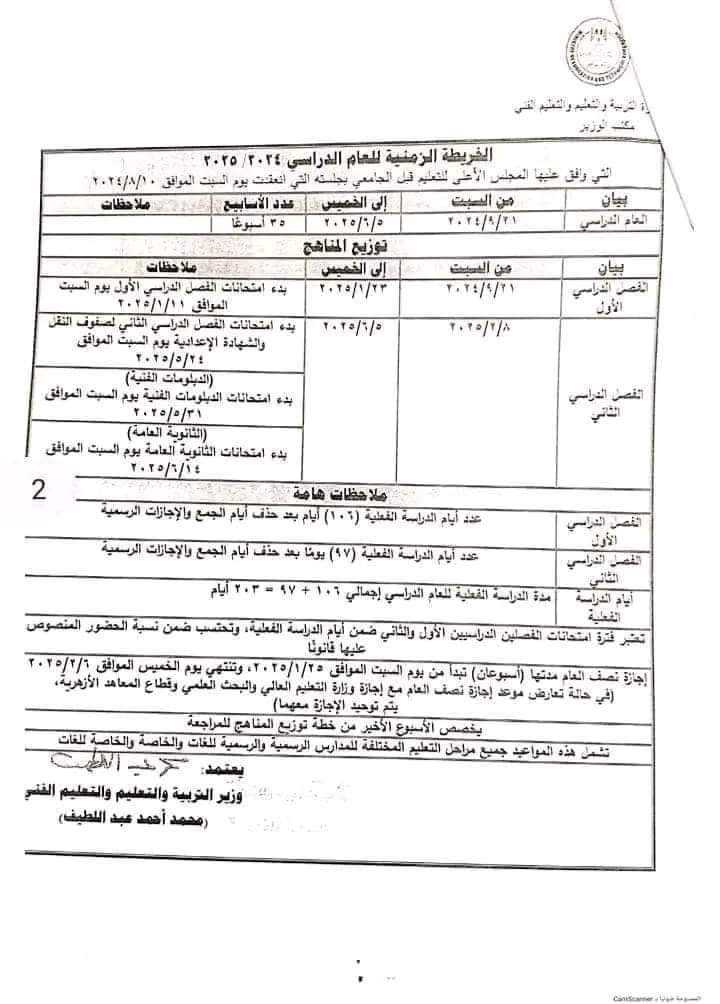 MINISTRY OF EDUCATION AND TECHNICAL EDUCATION
ة التربية والتعليم والتعليم الفني
مكتب الوزير
الخريطة الزمنية للعام الدراسي ٢٠٢٤/ ٢٠٢٥
التي وافق عليها المجلس الأعلى للتعليم قبل الجامعي بجلسته التي انعقدت يوم السبت الموافق ٢٠٢٤/٨/١٠
بيان من السبت إلى الخميس عدد الأسابيع ملاحظات
العام الدراسي ٢٠٢٤/٩/٢١ ٢٠٢٥/٦/٥ ٣٥ أسبوعًا
توزيع المناهج
بيان من السبت إلى الخميس ملاحظات
الفصل الدراسي ٢٠٢٤/٩/٢١ ٢٠٢٥/١/٢٣ بدء امتحانات الفصل الدراسي الأول يوم السبت
الأول الموافق ٢٠٢٥/١/١١
الفصل الدراسي
الثاني
٢٠٢٥/٢/٨ ٢٠٢٥/٦/٥ بدء امتحانات الفصل الدراسي الثاني لصفوف النقل
والشهادة الإعدادية يوم السبت الموافق
٢٠٢٥/٥/٢٤
(الدبلومات الفنية)
بدء امتحانات الدبلومات الفنية يوم السبت الموافق
٢٠٢٥/٥/٣١
(الثانوية العامة)
بدء امتحانات الثانوية العامة يوم السبت الموافق
٢٠٢٥/٦/١٤
2
ملاحظات هامة
الفصل الدراسي عدد أيام الدراسة الفعلية (١٠٦) أيام بعد حذف أيام الجمع والإجازات الرسمية
الأول
الفصل الدراسي عدد أيام الدراسة الفعلية (٩٧) يومًا بعد حذف أيام الجمع والإجازات الرسمية
الثاني
أيام الدراسة مدة الدراسة الفعلية للعام الدراسي إجمالي ١٠٦ + ٩٧ = ٢٠٣ أيام
الفعلية
تعتبر فترة امتحانات الفصلين الدراسيين الأول والثاني ضمن أيام الدراسة الفعلية، وتحتسب ضمن نسبة الحضور المنصوص
عليها قانونًا
إجازة نصف العام مدتها (أسبوعان) تبدأ من يوم السبت الموافق ٢٠٢٥/١/٢٥، وتنتهي يوم الخميس الموافق ٢٠٢٥/٢/٦
(في حالة تعارض موعد إجازة نصف العام مع إجازة وزارة التعليم العالي والبحث العلمي وقطاع المعاهد الأزهرية،
يتم توحيد الإجازة معهما)
يخصص الأسبوع الأخير من خطة توزيع المناهج للمراجعة
تشمل هذه المواعيد جميع مراحل التعليم المختلفة للمدارس الرسمية والرسمية للغات والخاصة والخاصة للغات
يعتمد:
وزير التربية والتعليم والتعليم الفني
(محمد أحمد عبد اللطيف)
الممسوحة ضوئيا بـ CamScanner